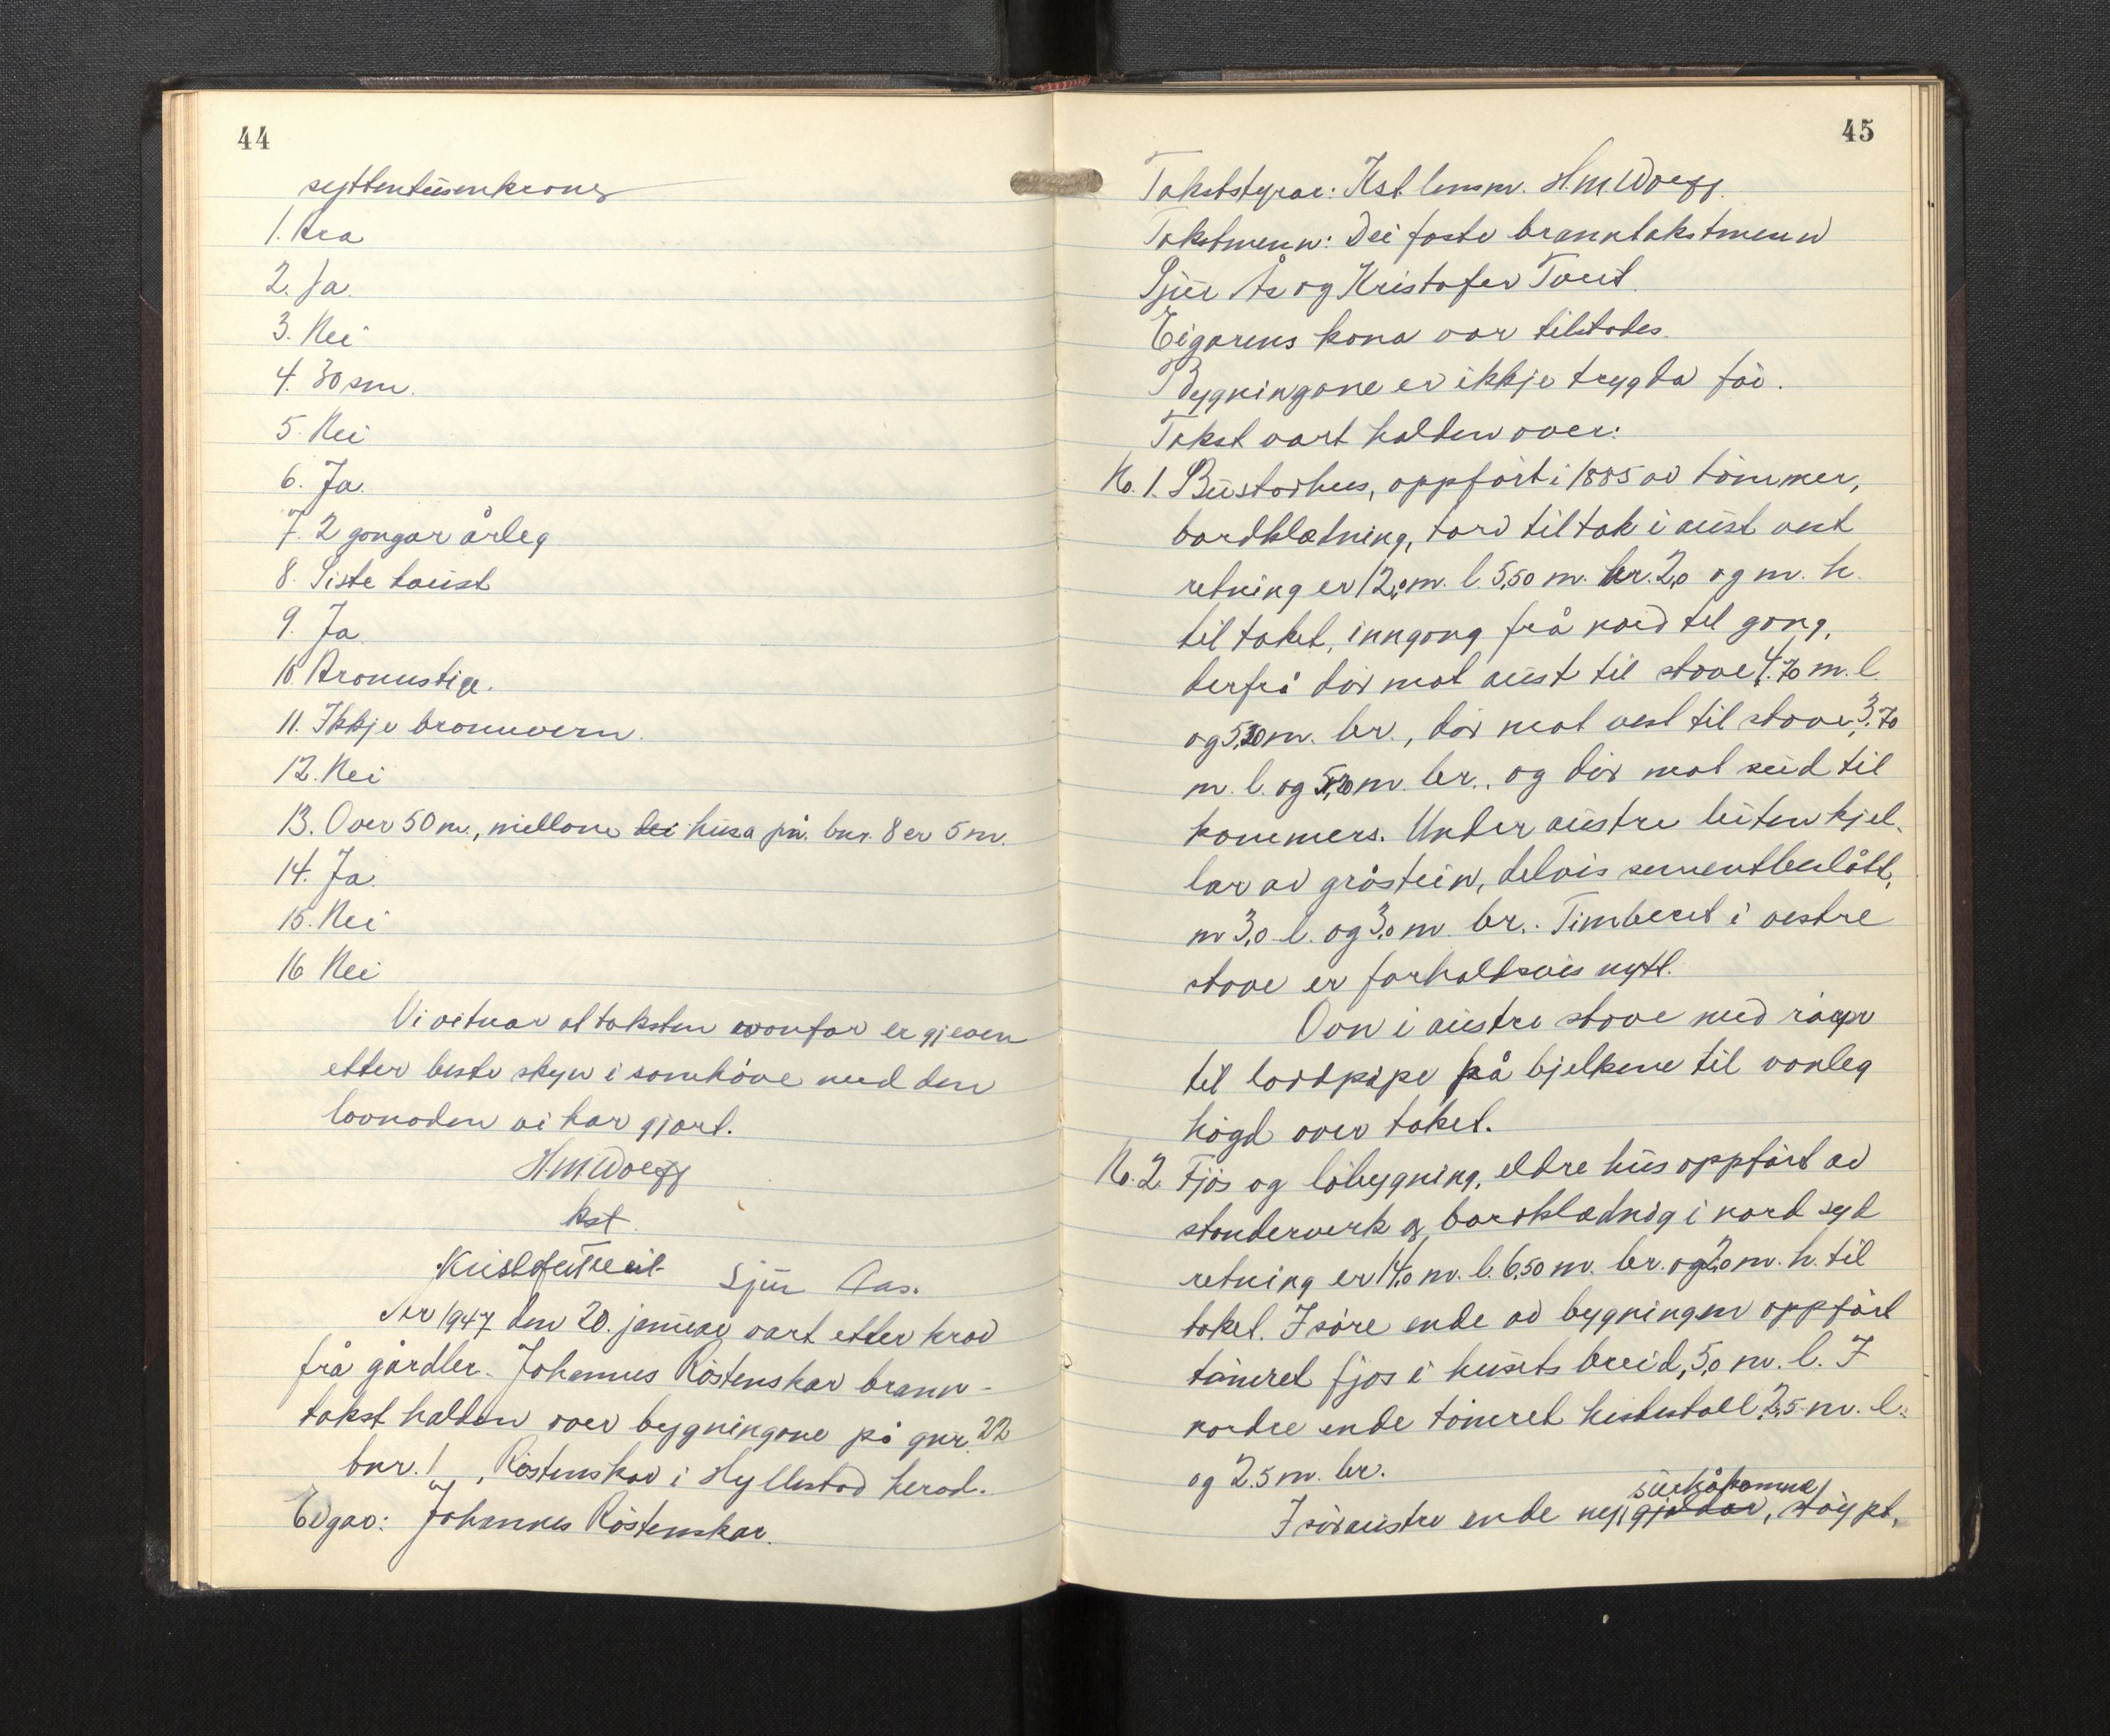 44
syttentusenkroner
1. Bra
2. Ja.
3. Nei
4. 30 sm.
5. Nei
6. Ja.
7. 2 gongar årleg
8. Siste haust
9. Ja.
10. Brannstige.
11. Ikkje brannvern.
12. Nei
13. Over 50 m., millom dei husa på bnr. 8 er 5 m.
14. Ja.
15. Nei
16 Nei
Vi vitnar at taksten ovanfor er gjeven
etter beste skyn i samhöve med den
lovnaden vi har gjort.
H. M. Woeff
kst.
Kristofer Tveit Sjur Aas.
År 1947 den 20. januar vart etter krav
frå gårdbr. Johannes Röstenskar brann-
takst halden over bygningane på gnr. 22
bnr. 1, Röstenskar i Hyllestad herad.
Eigar: Johannes Röstenskar.
45
Takststyrar: Kst. lensm. H. M. Woeff.
Takstmenn: Dei faste branntakstmenn
Sjur Ås og Kristofer Tveit.
Eigarens kona var tilstades.
Bygningane er ikkje trygda för.
Takst vart halden over:
No. 1. Bustadhus, oppfört i 1885 av tömmer,
bordklædning, torv til tak i aust vest
retning er 12,0 m. l. 5,50 m. br. 2,0 og m. h.
til taket, inngang frå nord til gang,
derfrå dör mot aust til stove 4.70 m. l.
og 5,20 m. br., dör mot vest til stove, 3,70
m. l. og 5,20 m. br., og dör mot sud til
kammers. Under austre luten kjel-
lar av gråstein, delvis sementbeslått,
m 3,0 l. og 3,0 m. br.. Timberet i vestre
stove er forholdsvis nytt.
Ovn i austre stove med röyr
til lordpipe på bjelkene til vanleg
högd over taket.
No. 2. Fjös og löbygning, eldre hus oppfört av
stenderverk og bordklædnig i nord syd
retning er 14,0 m. l. 6,50 m. br. og 2,0 m. h. til
taket. I söre ende av bygningen oppfört
tömret fjos i husets breid, 5,0 m. l. I
nordre ende tömret hestestall, 2,5 m. l.
og 2.5 m. br.
surhåkomne
I söraustre ende ny gjeldar, stöypt,